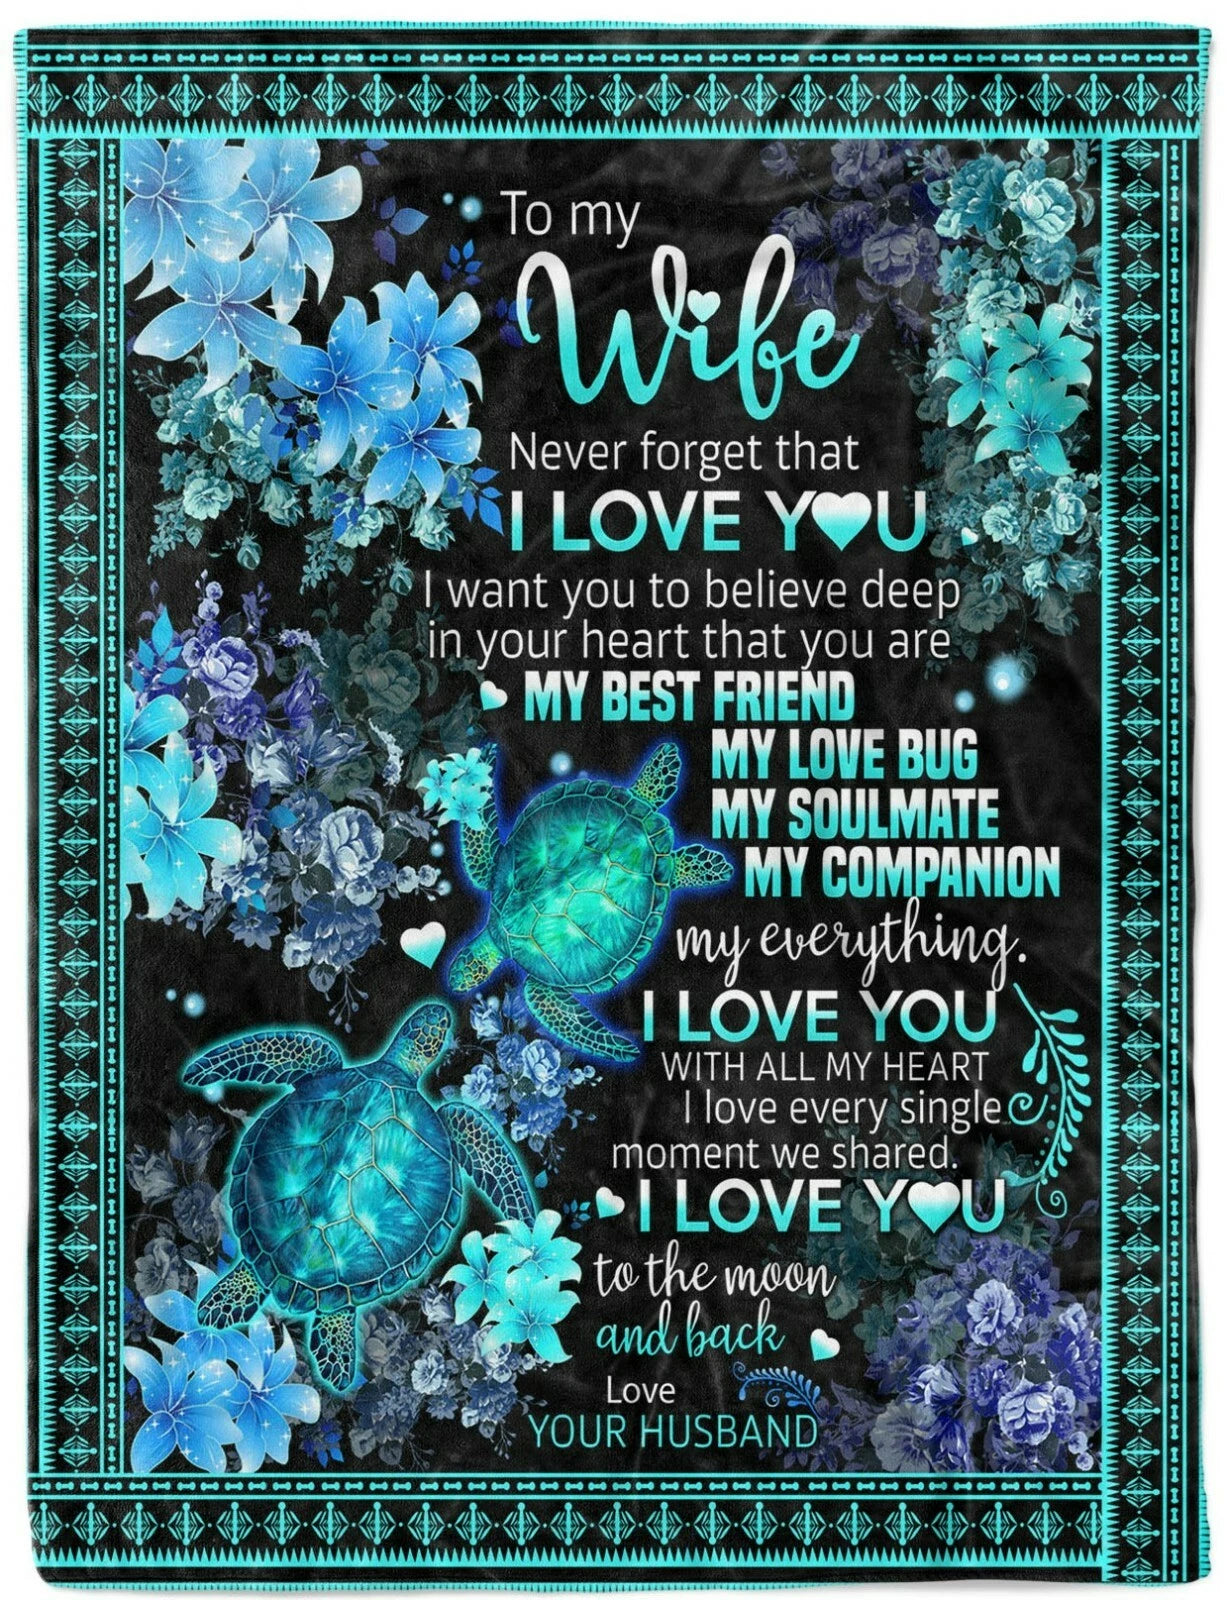 To my
Wife
Never forget that
I LOVE YOU
I want you to believe deep
in your heart that you are
MY BEST FRIEND
MY LOVE BUG
MY SOULMATE
MY COMPANION
my everything.
I LOVE YOU
WITH ALL MY HEART
I love every single
moment we shared.
I LOVE YOU
to the moon
and back
Love
YOUR HUSBAND